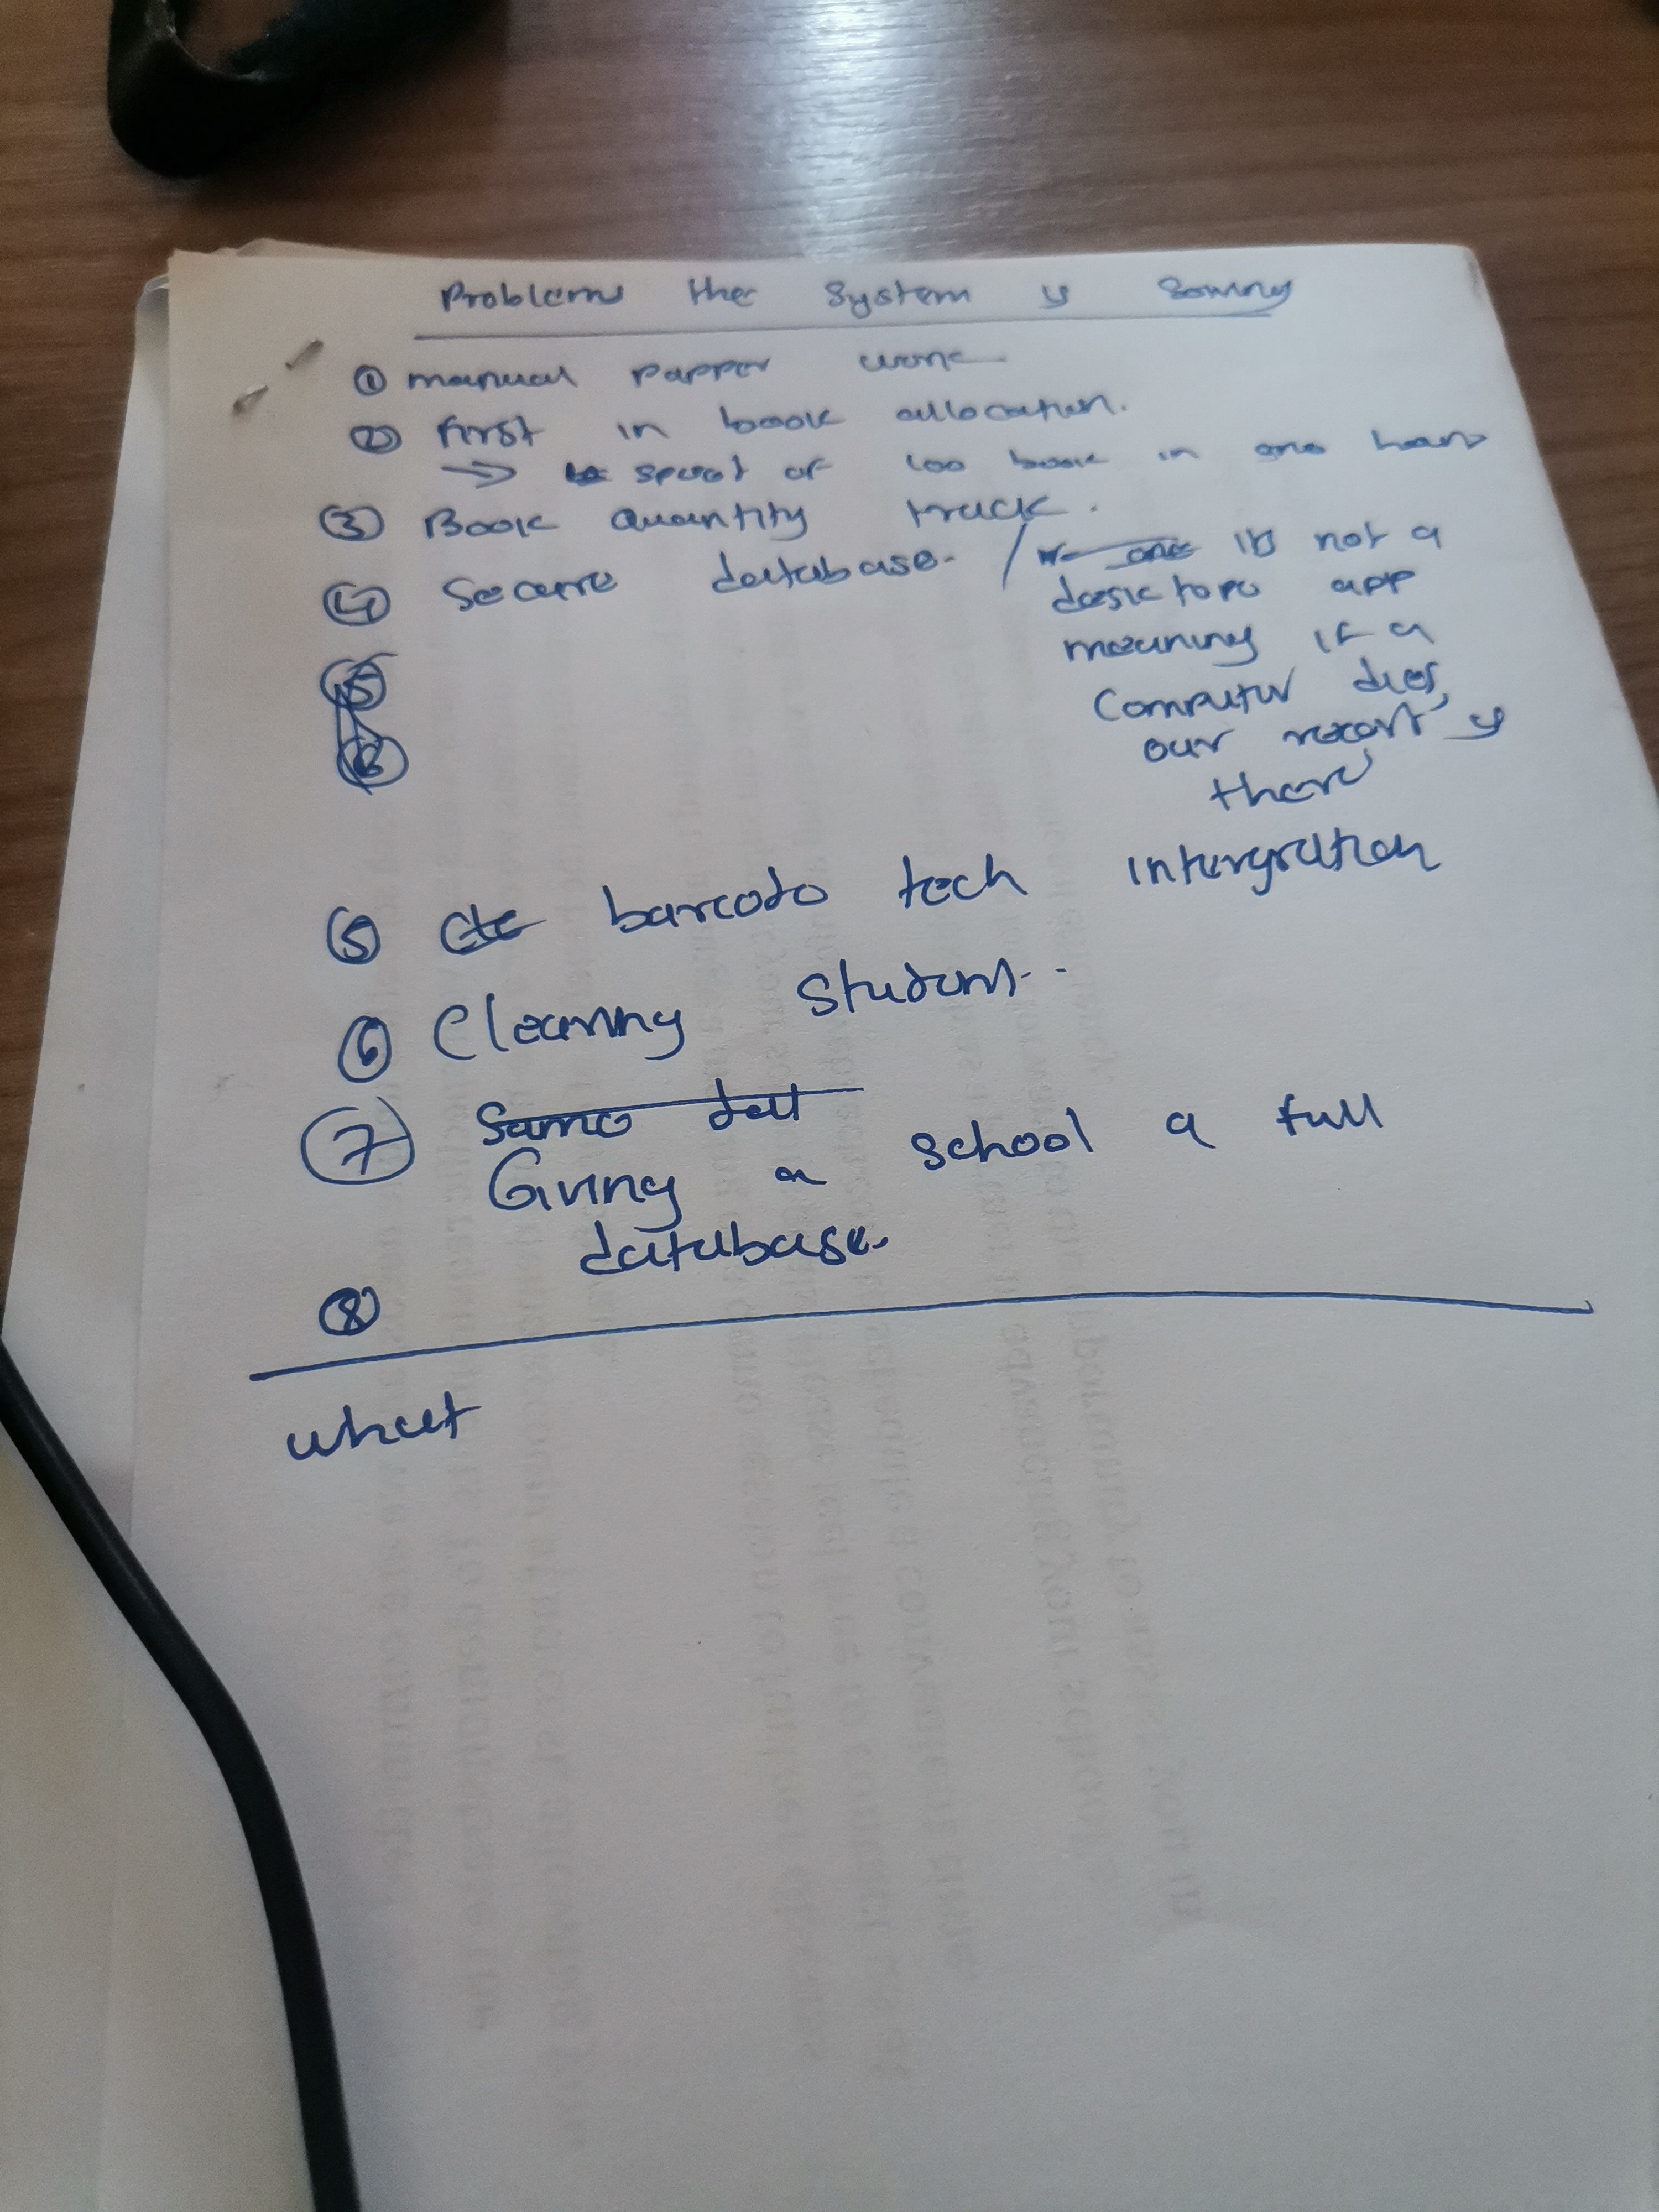 Problems the System is Solving
① manual papper work
② first in book allocation.
→ speed of 100 book in one hour
③ Book quantity track.
④ Secure database. / is not a
desktope app
meaning if a
Computer dies,
our record is
there
⑤ barcode tech intergration
⑥ Clearing student..
⑦ Same dat
Giving a school a full
database.
⑧
what